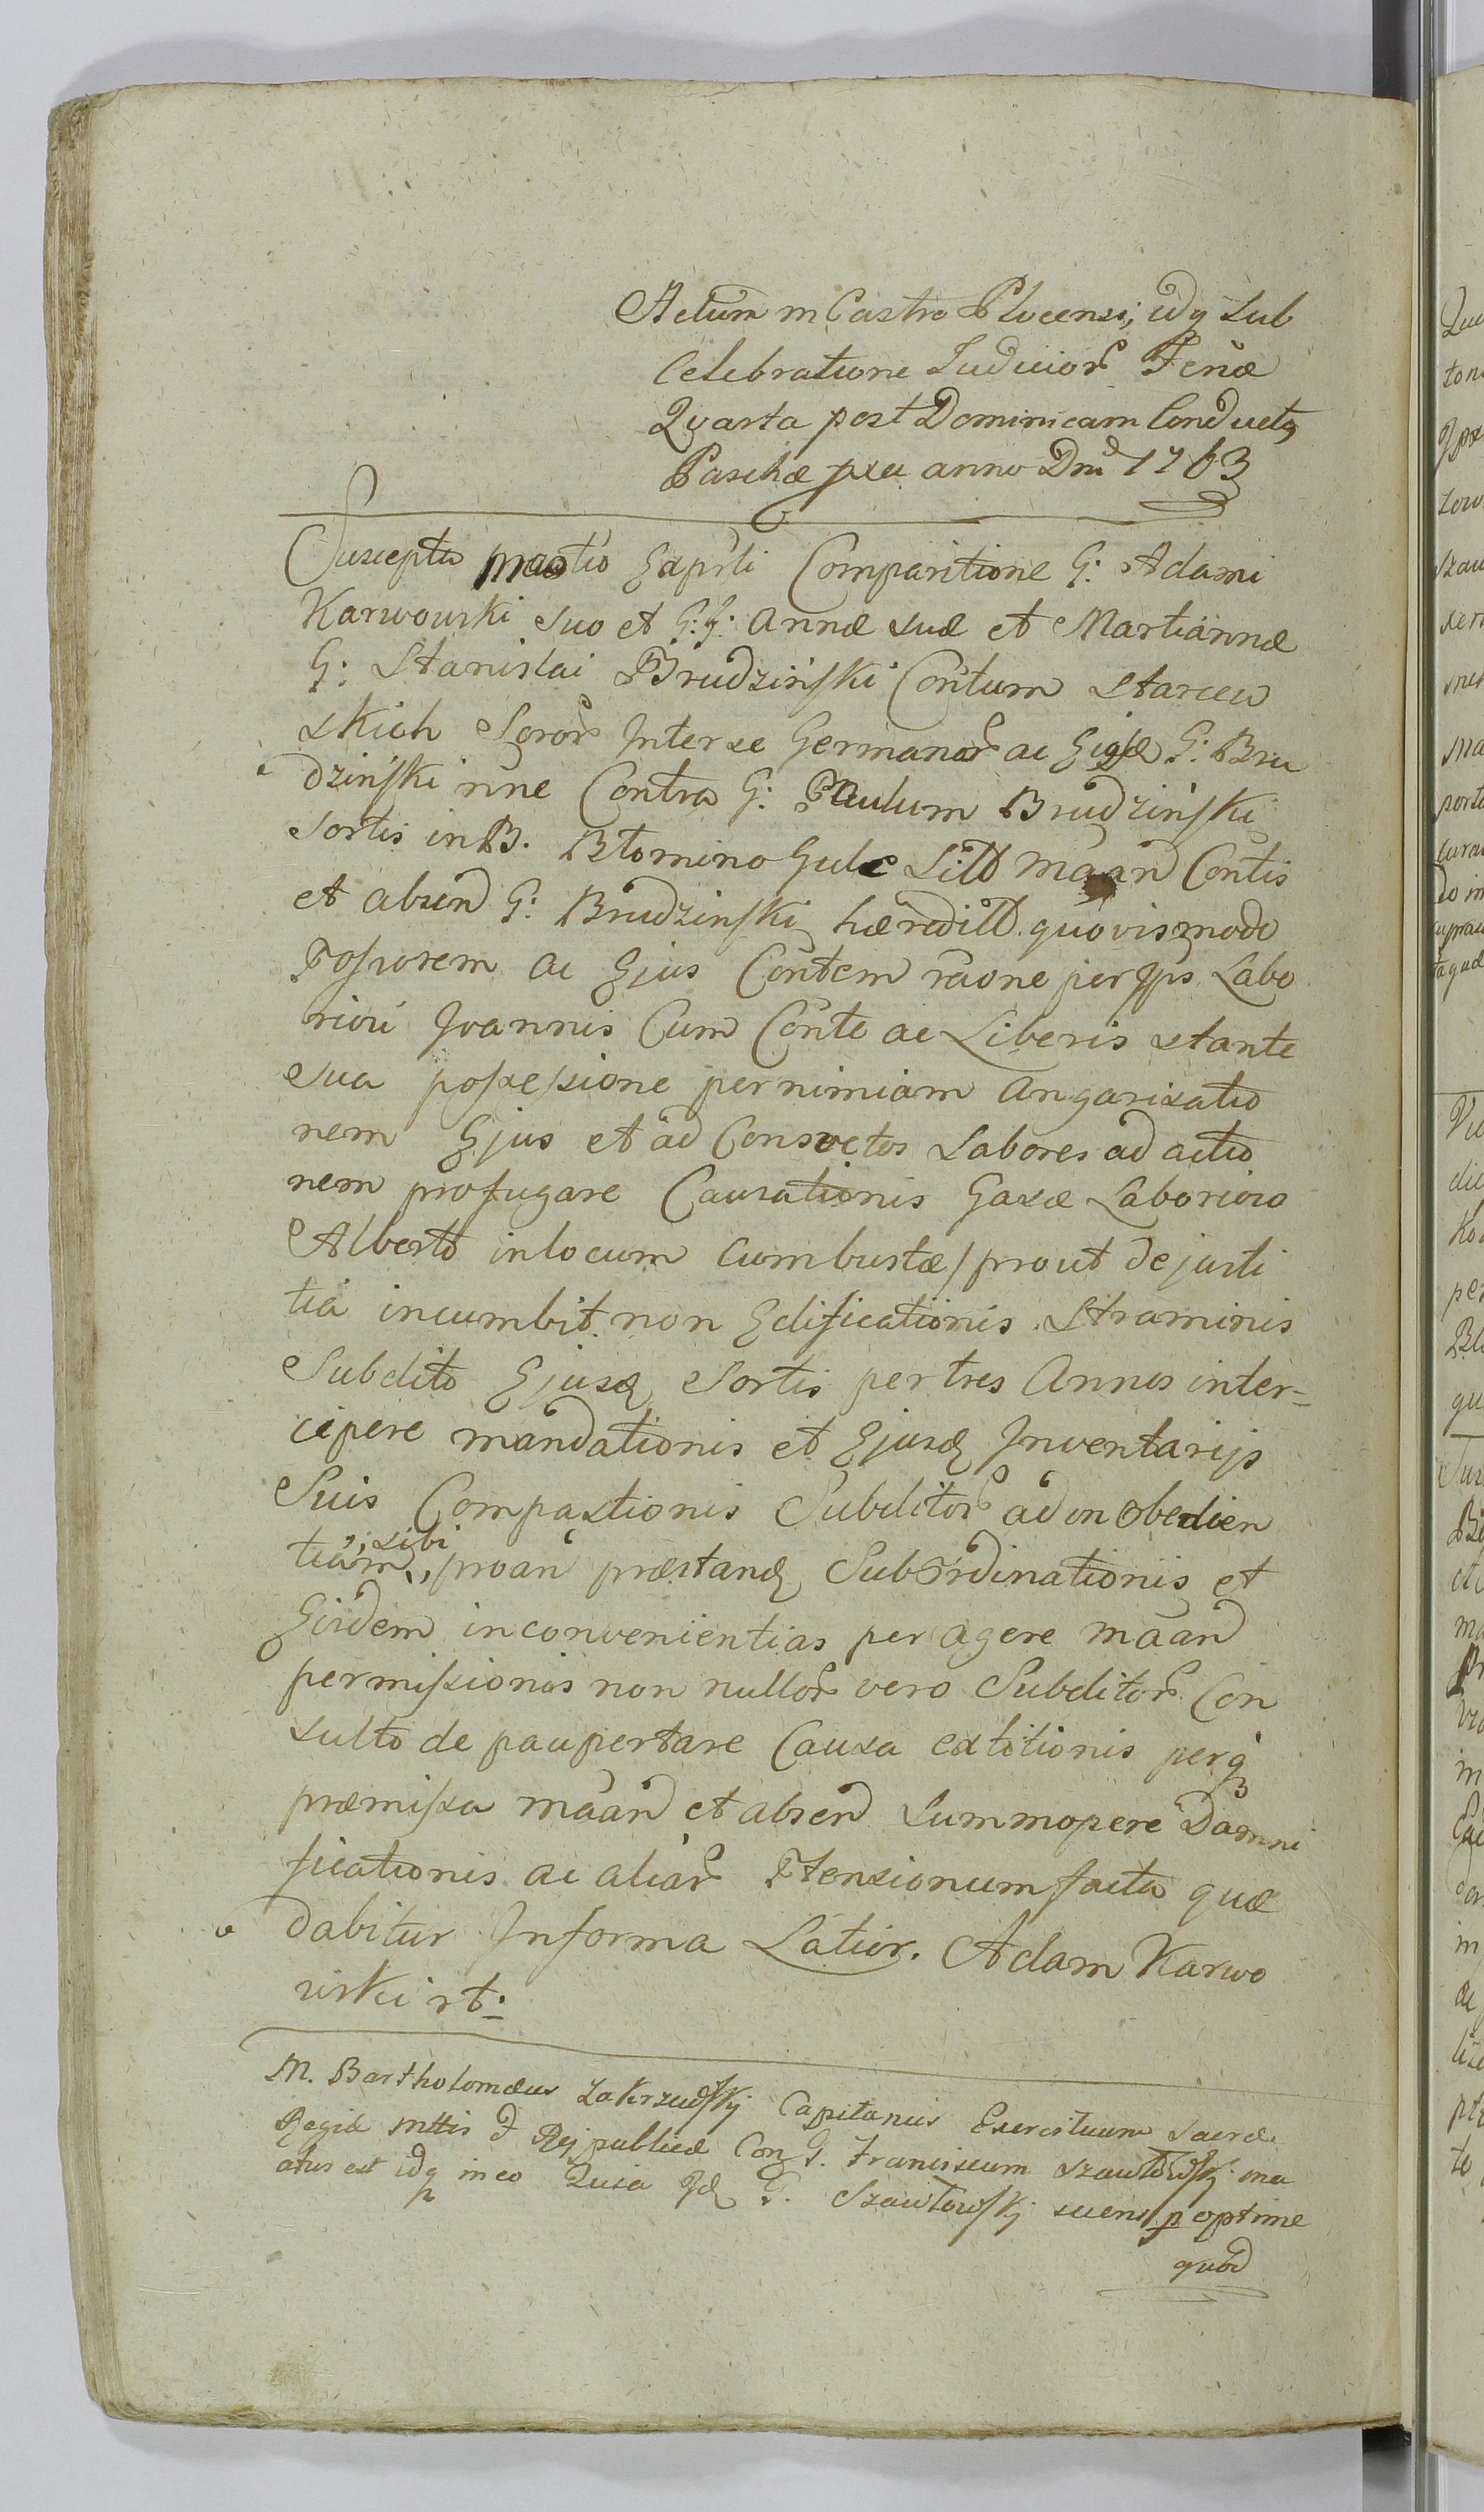 Actum in Castro Plocensi, idq sub
Celebratione Judicior Feriæ
Qvarta post Dominicam Conductq
Paschæ pxa anno Dni 1763
Suscepta Comparitione G: Adami
Karwowski suo et G:G: Annæ suæ et Martiannæ
G: Stanislai Brudzinski Contum Starcew
skich Soror Inter se Germanar ac G: Bru
dzinski nne Contra G: Paulum Brudzinski
Sortis in B. Blomino Gule Sitt maan Contis
et absend G: Brudzinski hæreditt quovismodo
Possorem ac Ejus Contem raone per Labo
riosi Joannis Cum Conte ac Liberis stante
sua possessione per nimiam Angarisatio
nem Ejus et ad Consvetos Labores ad actio
nem profugare Causationis Gasæ Laborioso
Alberto in locum Cumbustæ / prout de justi
tia incumbit non Edificationis Straminis
Subdito Ejusq Sortis per tres Annos inter=
cipere mandationis et Ejusq Inventarijs
Suis Compastionis Subditor ad in Obedien
sibi
tiam,, proan præstanq Subordinationis et
Eisdem inconvenientias per agere maan
permissionis non nullor vero Subditor Con
sulto de paupertare Causa extitionis perq
præmissa maan et absend Summopere Damni
ficationis ac aliar Ptensionum facta quæ
dabitur In forma Latior. Adam Karwo
wski rt:
M. Bartholomæus Zakrzewskj Capitaneus Exercituum Sacræ
Regiæ Mttis & Rejpublicæ Con G. Franciscum Szawłowskj ma
atus est idq in eo Quia Jd G. Szawłowskj sciens p optime
quod